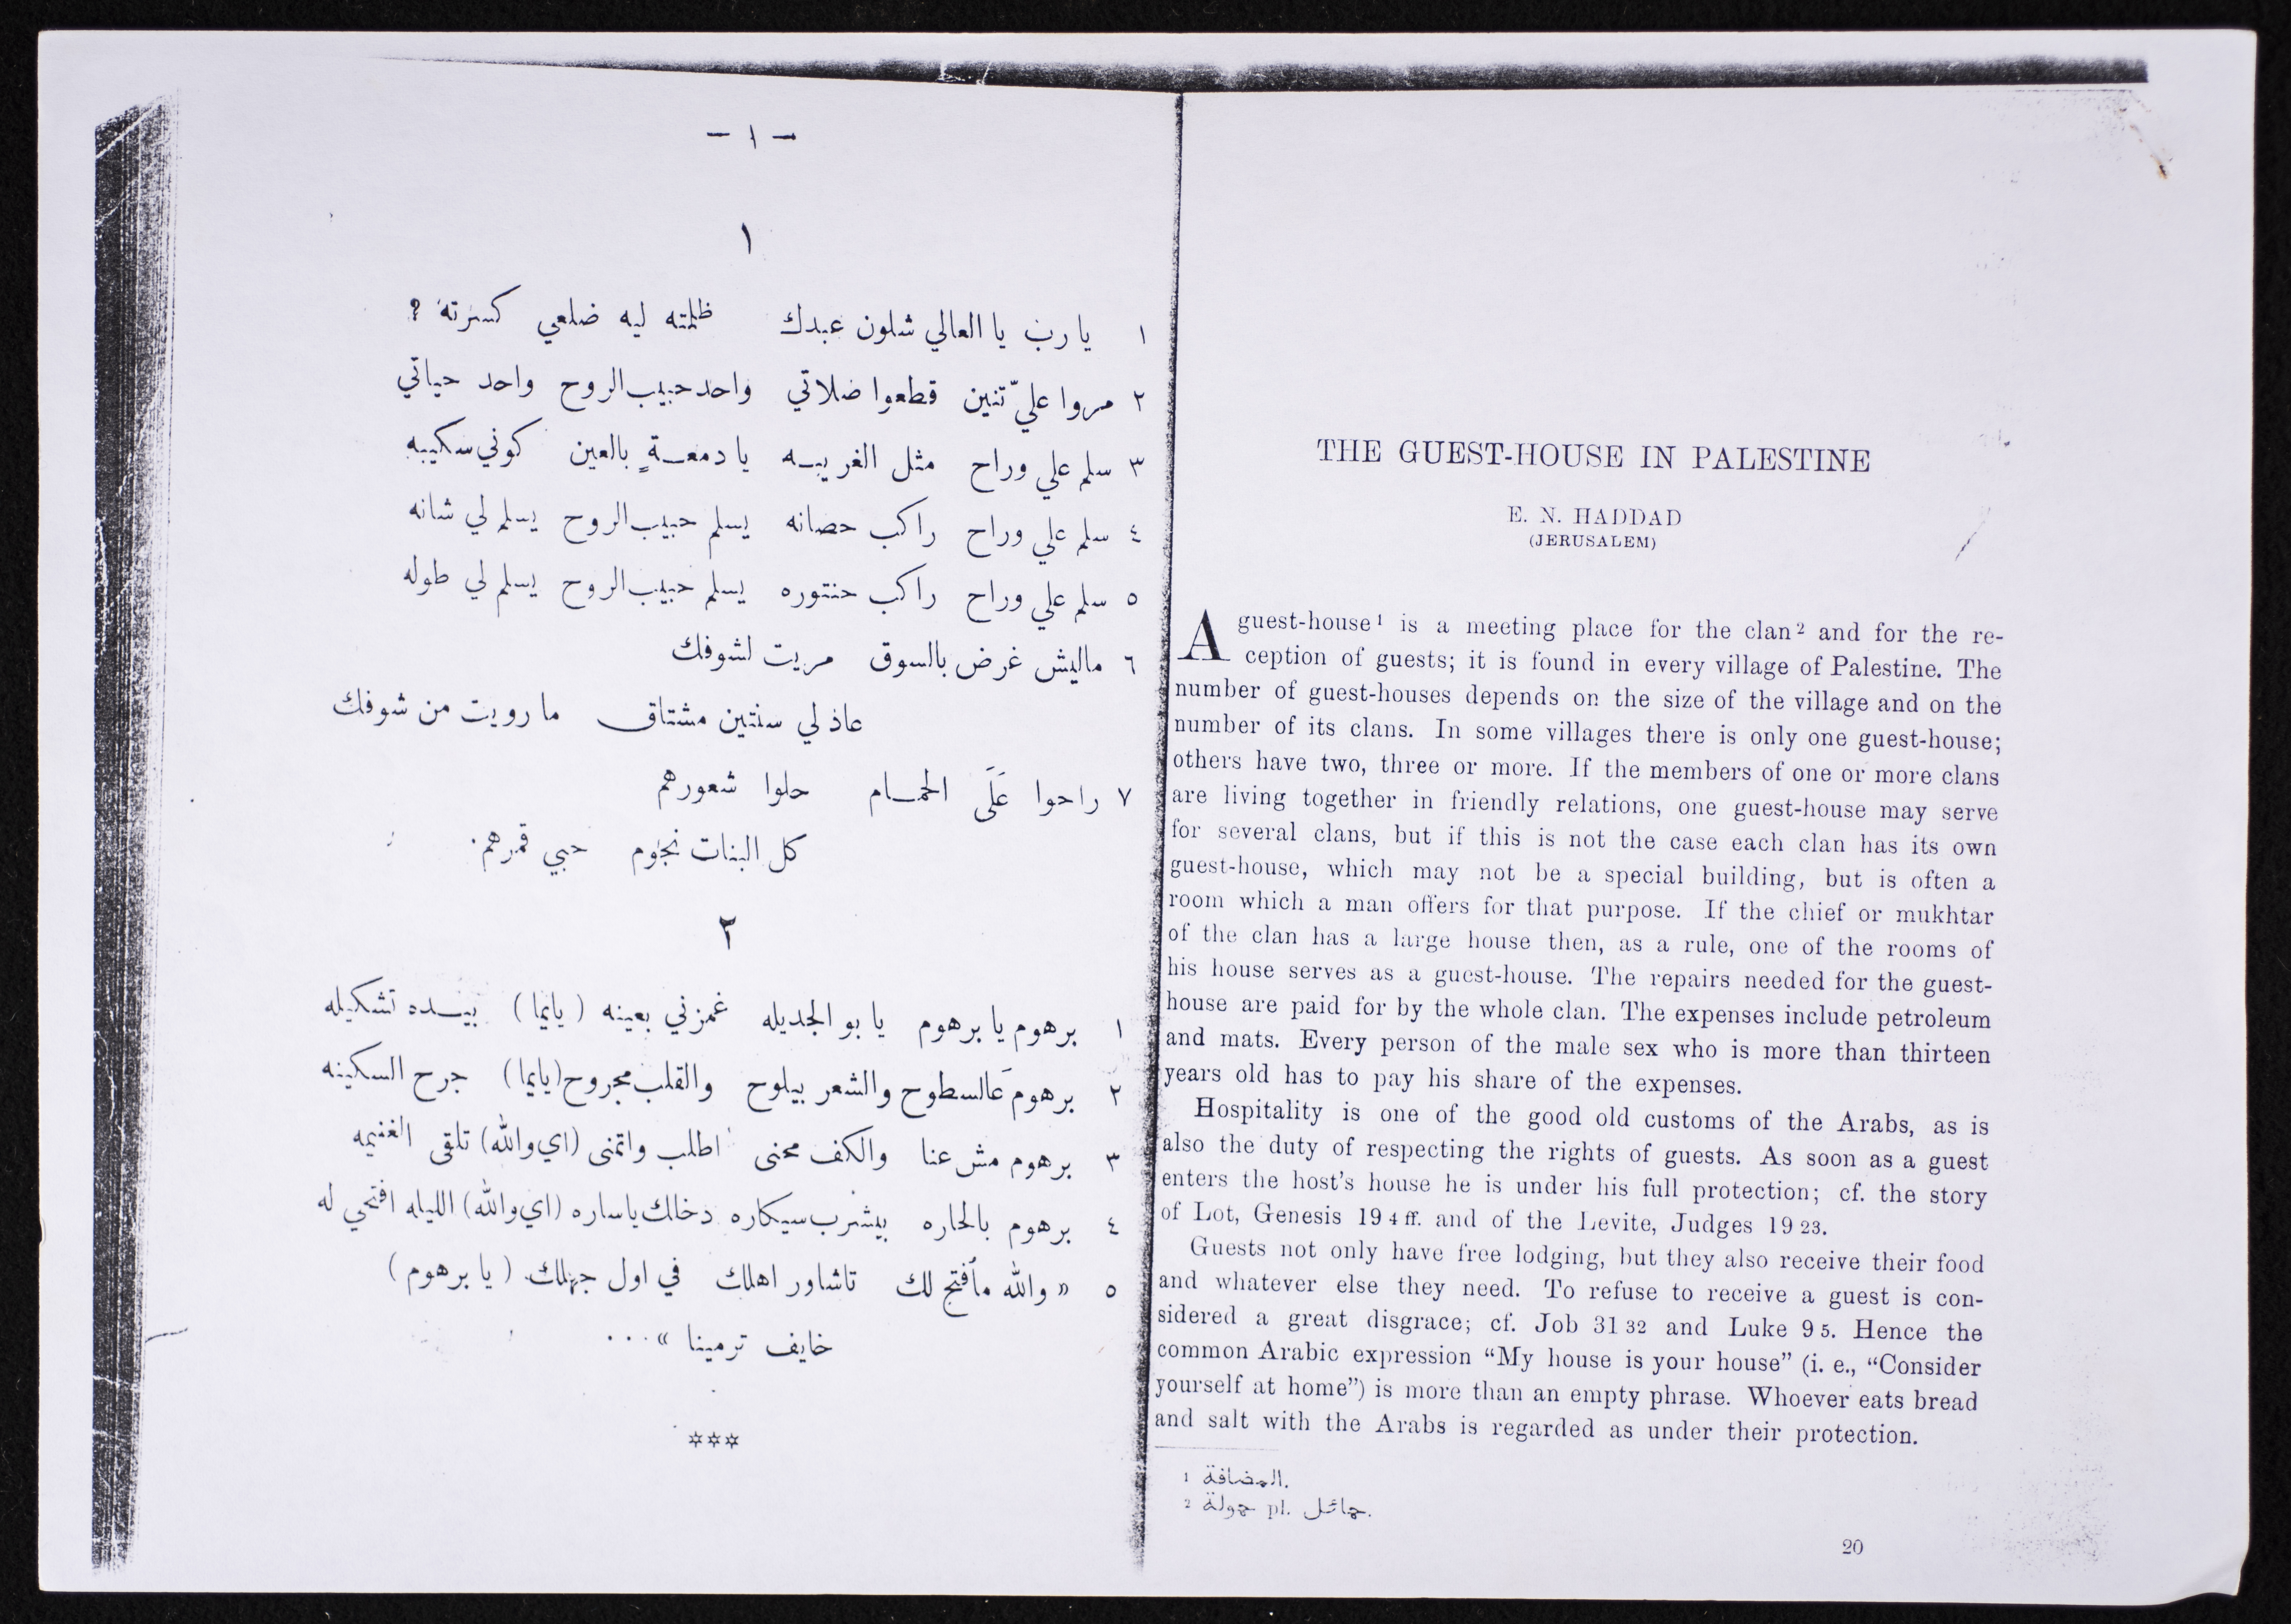 — ١ —
١
١ يا رب يا العالي شلون عبدك ظلمته ليه ضلعي كسرته ?
٢ مروا عليّ تنين قطعوا ضلاتي واحد حبيب الروح واحد حياتي
٣ سلم علي وراح مثل الغريبه يا دمعةٍ بالعين كوني سكيبه
٤ سلم علي وراح راكب حصانه يسلم حبيب الروح يسلم لي شانه
٥ سلم علي وراح راكب حنتوره يسلم حبيب الروح يسلم لي طوله
٦ ماليش غرض بالسوق مريت لشوفك
عاذلي سنتين مشتاق ما رويت من شوفك
٧ راحوا عَلَى الحمام حلوا شعورهم
كل البنات نجوم حبي قمرهم.
٢
١ برهوم يا برهوم يا بو الجديله غمزني بعينه (يايما) بيده تشكيله
٢ برهوم عَالسطوح والشعر بيلوح والقلب مجروح (يايما) جرح السكينه
٣ برهوم مش عنا والكف محنى اطلب واتمنى (اي والله) تلقى الغنيمه
٤ برهوم بالحاره بيشرب سيكاره دخالك ياساره (اي والله) الليله افتحي له
٥ «والله مأفتح لك تاشاور اهلك في اول جهلك (يا برهوم)
خايف ترمينا» ...
***
THE GUEST-HOUSE IN PALESTINE
E. N. HADDAD
(JERUSALEM)
A guest-house¹ is a meeting place for the clan² and for the re-
ception of guests; it is found in every village of Palestine. The
number of guest-houses depends on the size of the village and on the
number of its clans. In some villages there is only one guest-house;
others have two, three or more. If the members of one or more clans
are living together in friendly relations, one guest-house may serve
for several clans, but if this is not the case each clan has its own
guest-house, which may not be a special building, but is often a
room which a man offers for that purpose. If the chief or mukhtar
of the clan has a large house then, as a rule, one of the rooms of
his house serves as a guest-house. The repairs needed for the guest-
house are paid for by the whole clan. The expenses include petroleum
and mats. Every person of the male sex who is more than thirteen
years old has to pay his share of the expenses.
Hospitality is one of the good old customs of the Arabs, as is
also the duty of respecting the rights of guests. As soon as a guest
enters the host's house he is under his full protection; cf. the story
of Lot, Genesis 19 4 ff. and of the Levite, Judges 19 23.
Guests not only have free lodging, but they also receive their food
and whatever else they need. To refuse to receive a guest is con-
sidered a great disgrace; cf. Job 31 32 and Luke 9 5. Hence the
common Arabic expression “My house is your house” (i. e., “Consider
yourself at home”) is more than an empty phrase. Whoever eats bread
and salt with the Arabs is regarded as under their protection.
1 المضافة.
2 حمولة pl. حمائل.
20